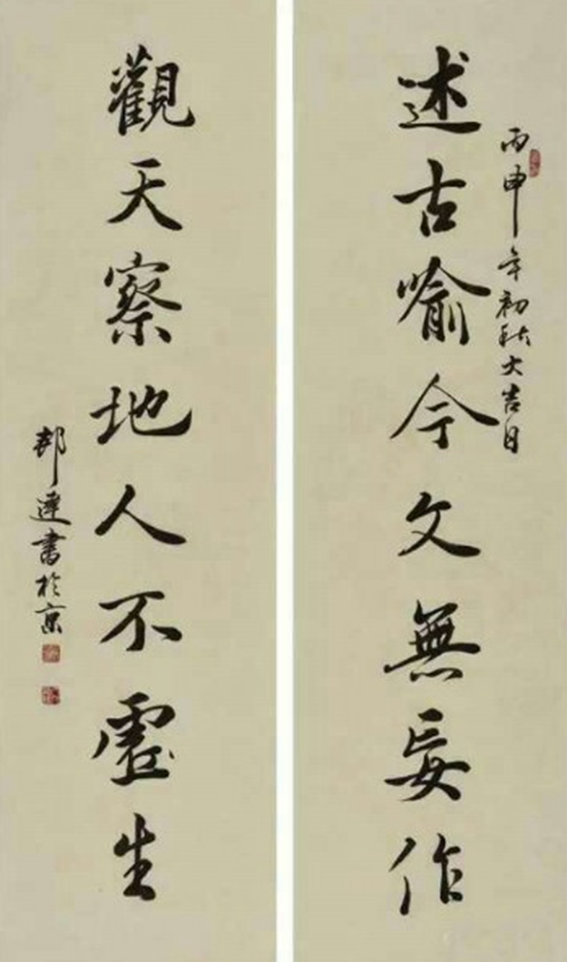 述古喻今文無妄作
丙申年初秋大吉日
觀天察地人不虛生
邦達書於京